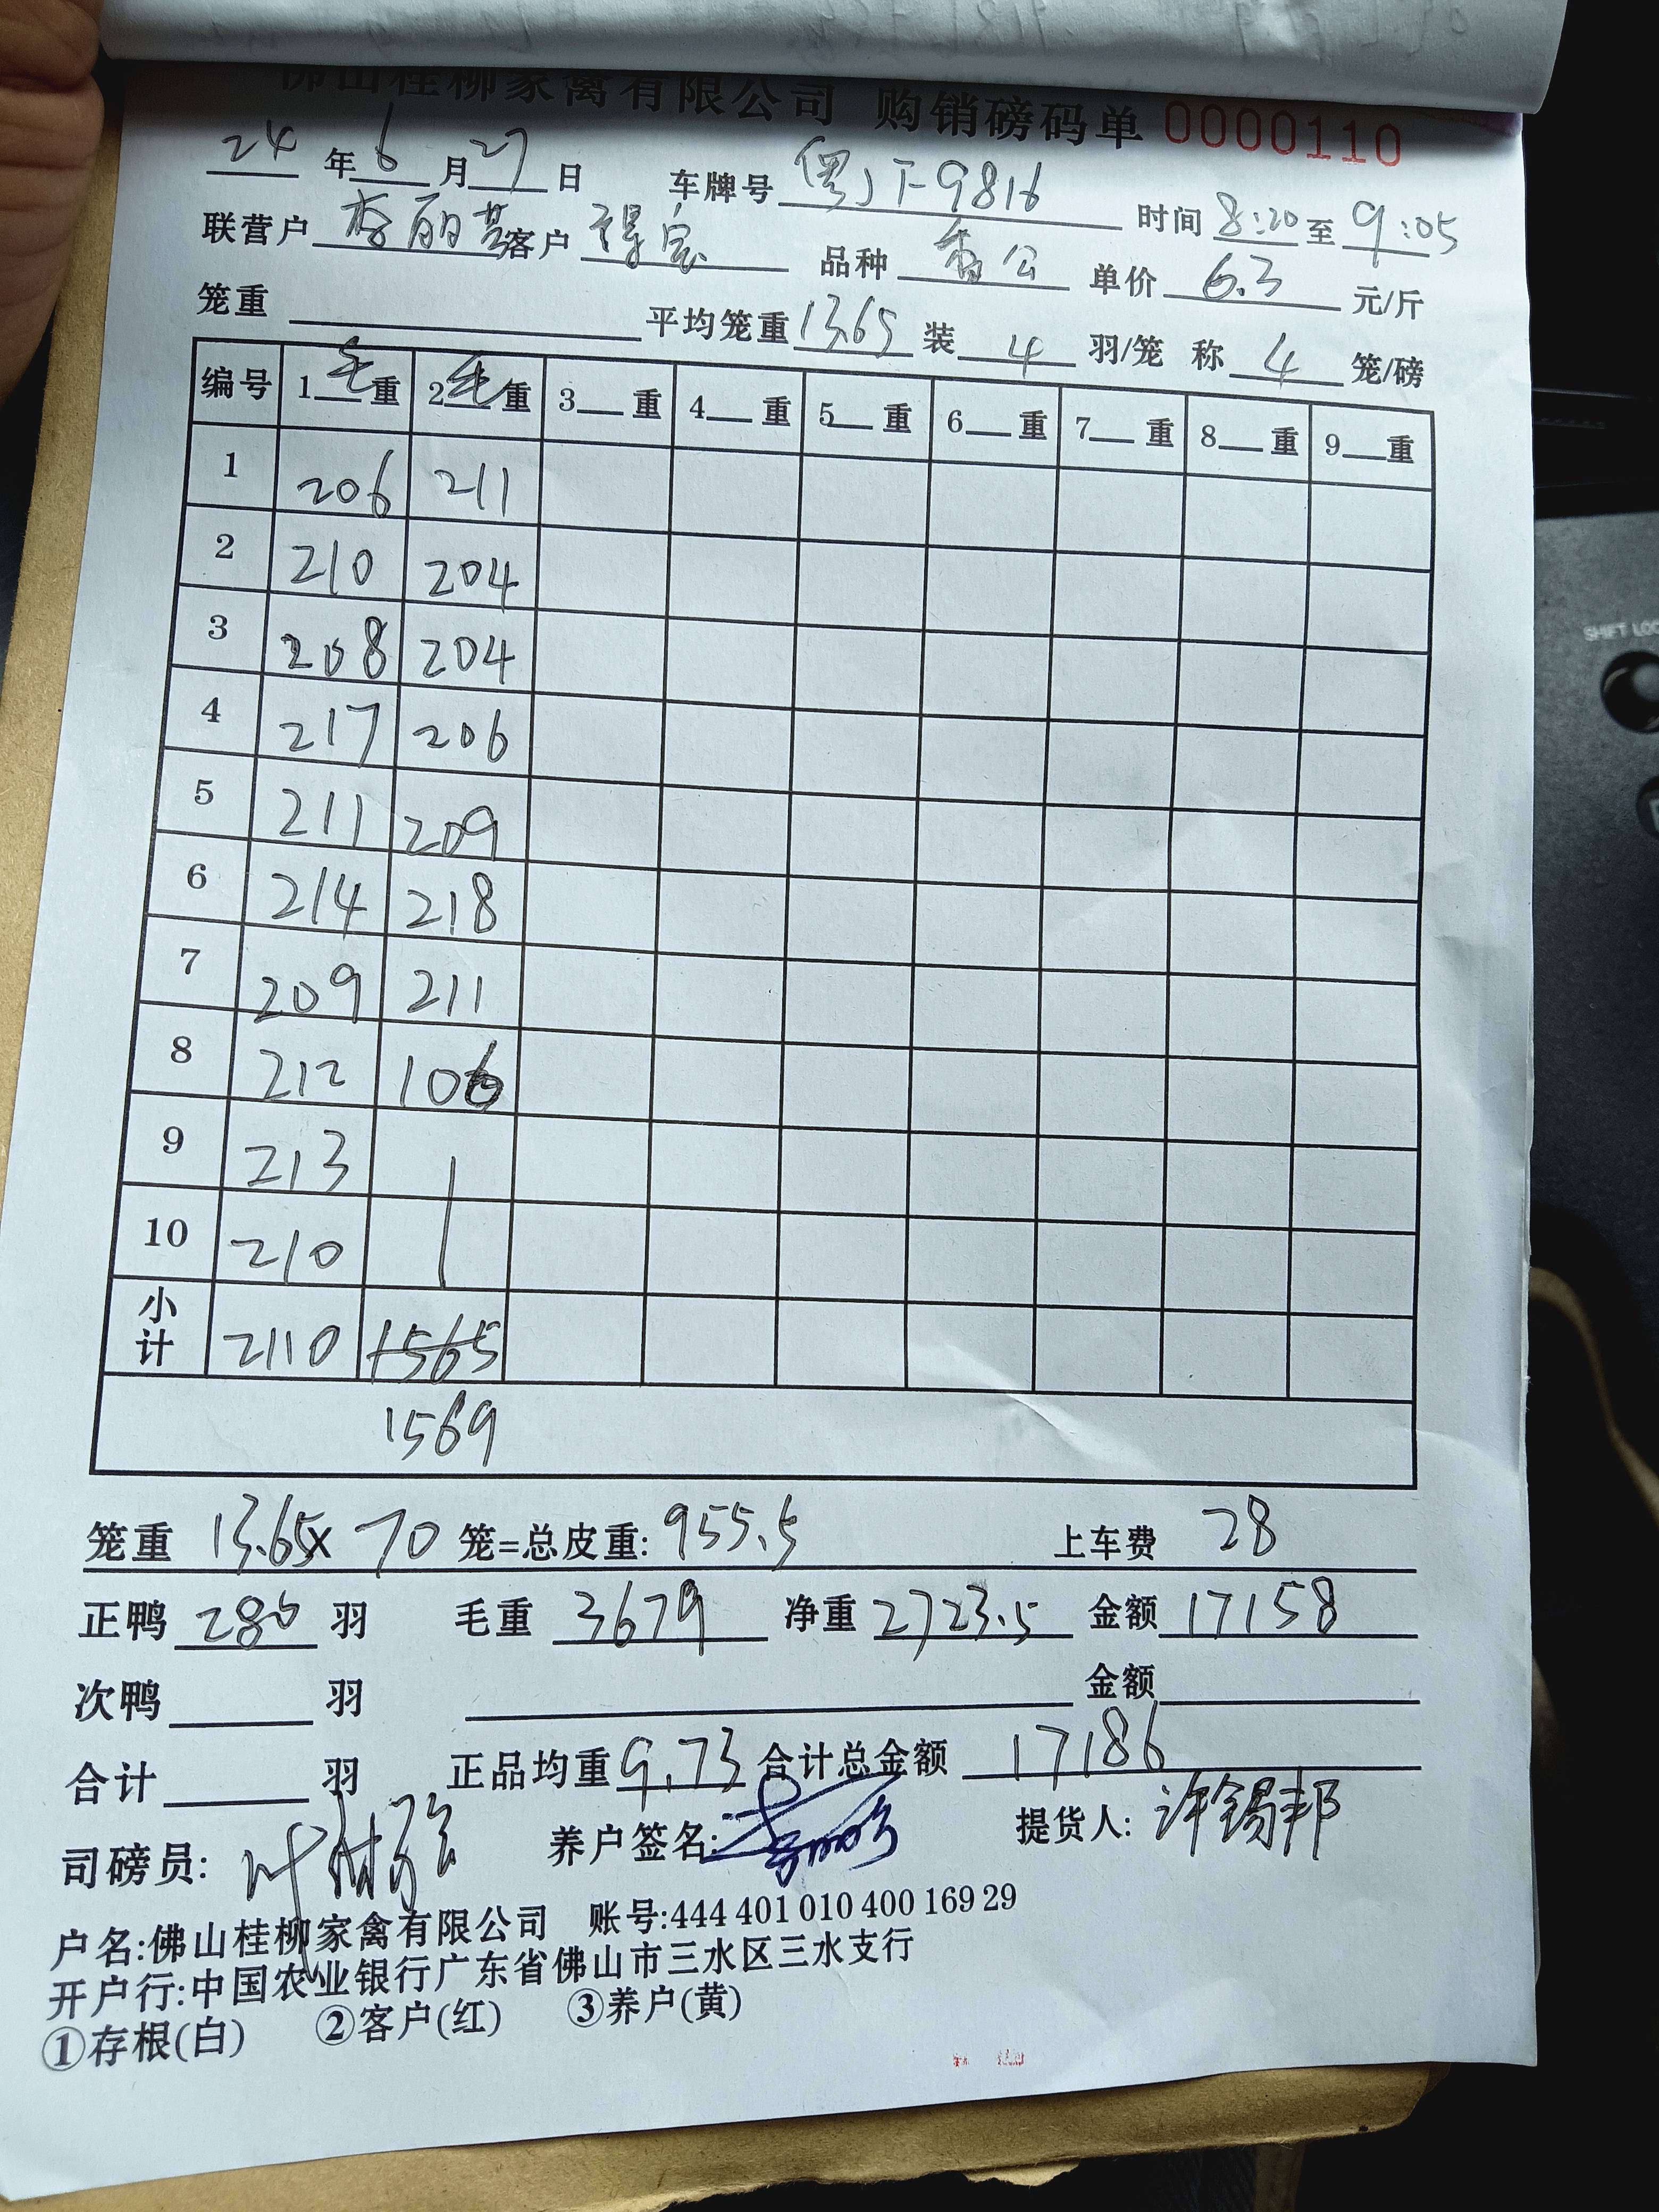 佛山桂柳家禽有限公司 购销磅码单 0000110
24 年 6 月 27 日 车牌号 粤JT-9816 时间 8:20 至 9:05
联营户 李丽芸 客户 得宝 品种 香公 单价 6.3 元/斤
笼重 平均笼重 13.65 装 4 羽/笼 称 4 笼/磅
编号 1毛重 2毛重 3__重 4__重 5__重 6__重 7__重 8__重 9__重
1 206 211
2 210 204
3 208 204
4 217 206
5 211 209
6 214 218
7 209 211
8 212 106
9 213
10 210
小计 2110 1565
1569
笼重 13.65× 70 笼=总皮重: 955.5 上车费 28
正鸭 280 羽 毛重 3679 净重 2723.5 金额 17158
次鸭 羽 金额
合计 羽 正品均重 9.73 合计总金额 17186
司磅员: 养户签名: 提货人: 许锡邦
户名:佛山桂柳家禽有限公司 账号:444 401 010 400 169 29
开户行:中国农业银行广东省佛山市三水区三水支行
①存根(白) ②客户(红) ③养户(黄)
SHIFT LOC